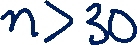 n > 30